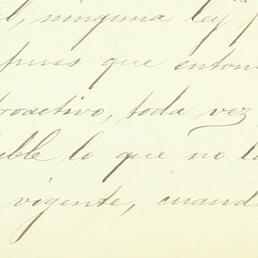 ninguna ley
pues que enton
roactivo, toda vez
ible lo que no l
vigente, cuand